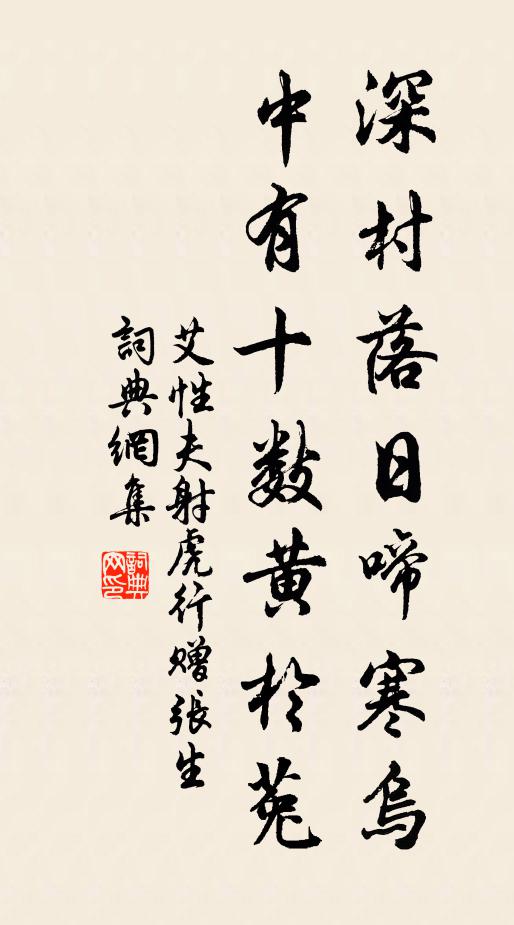 深村落日啼寒烏
中有十數黄於菟
艾性夫射虎行贈張生
詞典網集
詞典网印